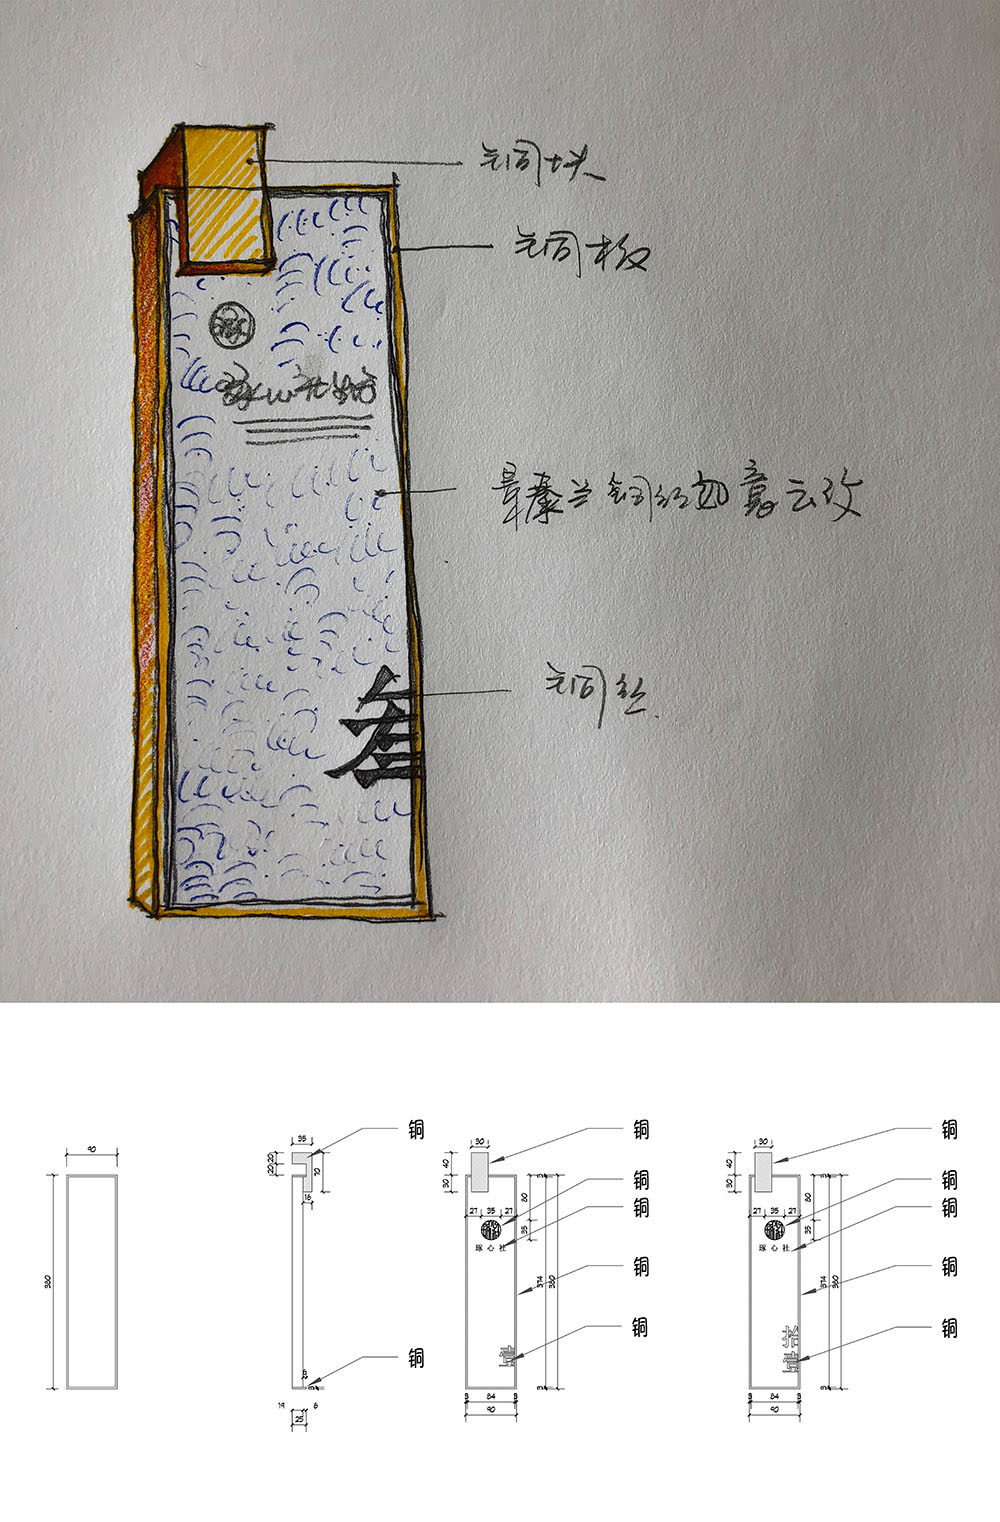 铜块
铜板
景泰兰铜丝如意云纹
铜丝
90
380
35
20
20
70
16
铜
铜
19
6
25
30
40
30
铜
铜
铜
铜
铜
27 35 27
80
35
琢心社
374
380
3 84 3
90
30
40
30
铜
铜
铜
铜
铜
27 35 27
80
35
琢心社
374
380
3 84 3
90